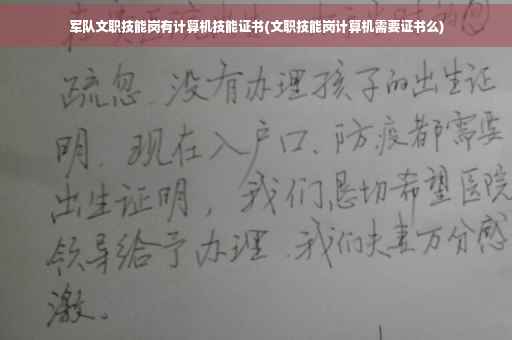 军队文职技能岗有计算机技能证书(文职技能岗计算机需要证书么)
疏忽、没有办理孩子的出生证
明、现在入户口、防疫都需要
出生证明，我们恳切希望医院
领导给予办理、我们夫妻万分感
激。